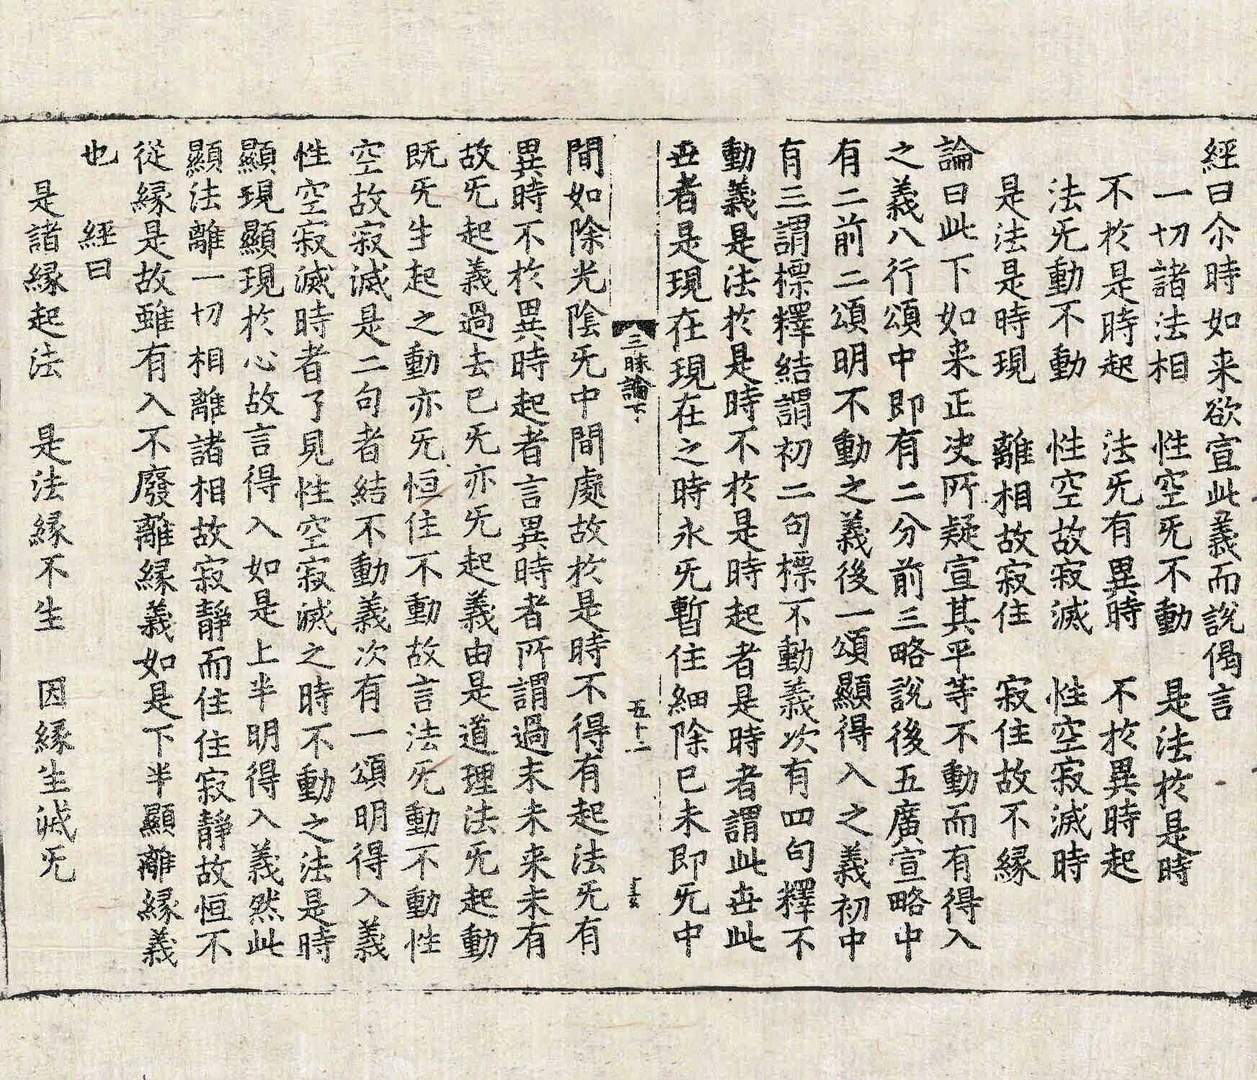 經曰尒時如来欲宣此義而說偈言
一切諸法相 性空旡不動 是法於是時
不於是時起 法旡有異時 不於異時起
法旡動不動 性空故寂滅 性空寂滅時
是法是時現 離相故寂住 寂住故不緣
論曰此下如来正决所疑宣其平等不動而有得入
之義八行頌中即有二分前三略說後五廣宣略中
有二前二頌明不動之義後一頌顯得入之義初中
有三謂標釋結謂初二句標不動義次有四句釋不
動義是法於是時不於是時起者是時者謂此世此
世者是現在現在之時永旡暫住細除已未即旡中
三昧論下 五十二
間如除光陰旡中間處故於是時不得有起法旡有
異時不於異時起者言異時者所謂過未未来未有
故旡起義過去已旡亦旡起義由是道理法旡起動
既旡生起之動亦旡恒住不動故言法旡動不動性
空故寂滅是二句者結不動義次有一頌明得入義
性空寂滅時者了見性空寂滅之時不動之法是時
顯現顯現於心故言得入如是上半明得入義然此
顯法離一切相離諸相故寂靜而住住寂靜故恒不
從緣是故雖有入不廢離緣義如是下半顯離緣義
也 經曰
是諸緣起法 是法緣不生 因緣生滅旡